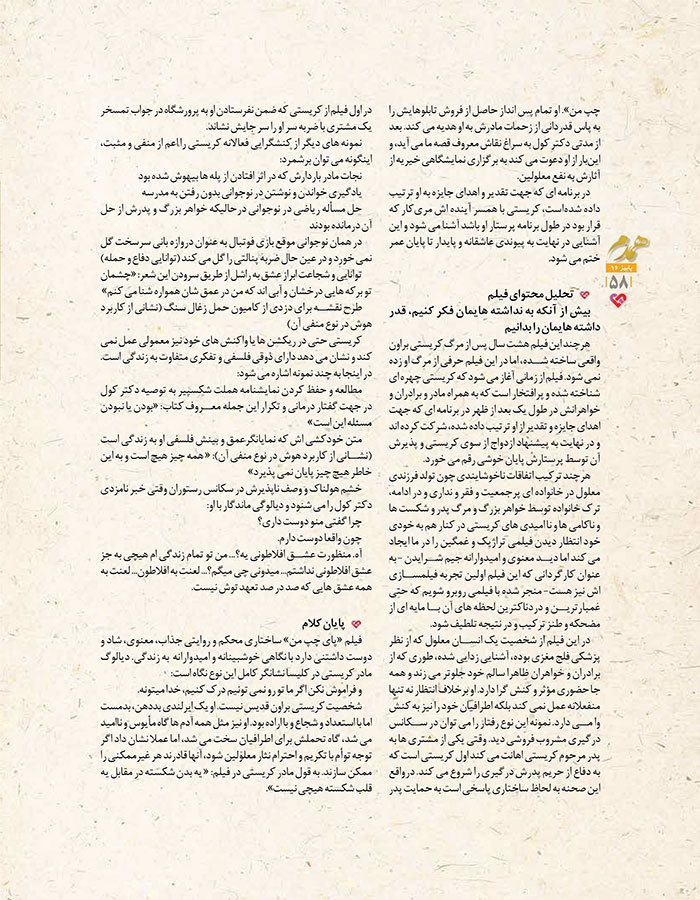 چپ من». او تمام پس انداز حاصل از فروش تابلوهایش را
به پاس قدردانی از زحمات مادرش به او هدیه می کند. بعد
از مدتی دکتر کول به سراغ نقاش معروف قصه ما می آید، و
این‌بار از او دعوت می کند به برگزاری نمایشگاهی خیریه از
آثارش به نفع معلولین.
در برنامه ای که جهت تقدیر و اهدای جایزه به او ترتیب
داده شده‌است، کریستی با همسر آینده اش مری‌کار که
قرار بود در طول برنامه پرستار او باشد آشنا می شود و این
آشنایی در نهایت به پیوندی عاشقانه و پایدار تا پایان عمر
ختم می شود.
تحلیل محتوای فیلم
بیش از آنکه به نداشته هایمان فکر کنیم، قدر
داشته هایمان را بدانیم
هرچند این فیلم هشت سال پس از مرگ کریستی براون
واقعی ساخته شده، اما در این فیلم حرفی از مرگ او زده
نمی شود. فیلم از زمانی آغاز می شود که کریستی چهره ای
شناخته شده و پرافتخار است که به همراه مادر و برادران و
خواهرانش در طول یک بعد از ظهر در برنامه ای که جهت
اهدای جایزه و تقدیر از او ترتیب داده شده، شرکت کرده اند
و در نهایت به پیشنهاد ازدواج از سوی کریستی و پذیرش
آن توسط پرستارش پایان خوشی رقم می خورد.
هرچند ترکیب اتفاقات ناخوشایندی چون تولد فرزندی
معلول در خانواده ای پرجمعیت و فقر و نداری و در ادامه،
ترک خانواده توسط خواهر بزرگ و مرگ پدر و شکست ها
و ناکامی ها و ناامیدی های کریستی در کنار هم به خودی
خود انتظار دیدن فیلمی تراژیک و غمگین را در ما ایجاد
می کند اما دید معنوی و امیدوارانه جیم شرایدن -به
عنوان کارگردانی که این فیلم اولین تجربه فیلمسازی
اش نیز هست- منجر شده با فیلمی روبرو شویم که حتی
غمبارترین و دردناکترین لحظه های آن با مایه ای از
مضحکه و طنز ترکیب و در نتیجه تلطیف شود.
در این فیلم از شخصیت یک انسان معلول که از نظر
پزشکی فلج مغزی بوده، آشنایی زدایی شده، طوری که از
برادران و خواهران ظاهرا سالم خود جلوتر می زند و همه
جا حضوری مؤثر و کنش گرا دارد. او برخلاف انتظار نه تنها
منفعلانه عمل نمی کند بلکه اطرافیان خود را نیز به کنش
وا می دارد. نمونه این نوع رفتار را می توان در سکانس
درگیری مشروب فروشی دید. وقتی یکی از مشتری ها به
پدر مرحوم کریستی اهانت می کند اول کریستی است که
به دفاع از حریم پدرش درگیری را شروع می کند. درواقع
این صحنه به لحاظ ساختاری پاسخی است به حمایت پدر
همدم
پاییز ۹۶
۵۸
در اول فیلم از کریستی که ضمن نفرستادن او به پرورشگاه در جواب تمسخر
یک مشتری با ضربه سر او را سر جایش نشاند.
نمونه های دیگر از کنشگرایی فعالانه کریستی را اعم از منفی و مثبت،
اینگونه می توان برشمرد:
نجات مادر باردارش که در اثر افتادن از پله ها بیهوش شده بود
یادگیری خواندن و نوشتن در نوجوانی بدون رفتن به مدرسه
حل مسأله ریاضی در نوجوانی درحالیکه خواهر بزرگ و پدرش از حل
آن درمانده بودند
در همان نوجوانی موقع بازی فوتبال به عنوان دروازه بانی سرسخت گل
نمی خورد و در عین حال ضربه پنالتی را گل می کند (توانایی دفاع و حمله)
توانایی و شجاعت ابراز عشق به راشل از طریق سرودن این شعر: «چشمان
تو برکه هایی درخشان و آبی اند که من در عمق شان همواره شنا می کنم»
طرح نقشه برای دزدی از کامیون حمل زغال سنگ (نشانی از کاربرد
هوش در نوع منفی آن)
کریستی حتی در ریکشن ها یا واکنش های خود نیز معمولی عمل نمی
کند و نشان می دهد دارای ذوقی فلسفی و تفکری متفاوت به زندگی است.
در اینجا به چند نمونه اشاره می شود:
مطالعه و حفظ کردن نمایشنامه هملت شکسپیر به توصیه دکتر کول
در جهت گفتار درمانی و تکرار این جمله معروف کتاب: «بودن یا نبودن
مسئله این است»
متن خودکشی اش که نمایانگر عمق و بینش فلسفی او به زندگی است
(نشانی از کاربرد هوش در نوع منفی آن): «همه چیز هیچ است و به این
خاطر هیچ چیز پایان نمی پذیرد»
خشم هولناک و وصف ناپذیرش در سکانس رستوران وقتی خبر نامزدی
دکتر کول را می شنود و دیالوگی ماندگار با او:
چرا گفتی منو دوست داری؟
چون واقعا دوست دارم.
آه. منظورت عشق افلاطونی یه؟... من تو تمام زندگی ام هیچی به جز
عشق افلاطونی نداشتم... میدونی چی میگم؟... لعنت به افلاطون... لعنت به
همه عشق هایی که صد در صد تعهد توش نیست.
پایان کلام
فیلم «پای چپ من» ساختاری محکم و روایتی جذاب، معنوی، شاد و
دوست داشتنی دارد با نگاهی خوشبینانه و امیدوارانه به زندگی. دیالوگ
مادر کریستی در کلیسا نشانگر کامل این نوع نگاه است:
و فراموش نکن اگر ما تو رو نمی تونیم درک کنیم، خدا میتونه.
شخصیت کریستی براون قدیس نیست. او یک ایرلندی بددهن، بدمست
اما با استعداد و شجاع و با اراده بود. او نیز مثل همه آدم ها گاه مأیوس و ناامید
می شد، گاه تحملش برای اطرافیان سخت می شد، اما عملا نشان داد اگر
توجه توأم با تکریم و احترام نثار معلولین شود، آنها قادرند هر غیرممکنی را
ممکن سازند. به قول مادر کریستی در فیلم: «یه بدن شکسته در مقابل یه
قلب شکسته هیچی نیست».